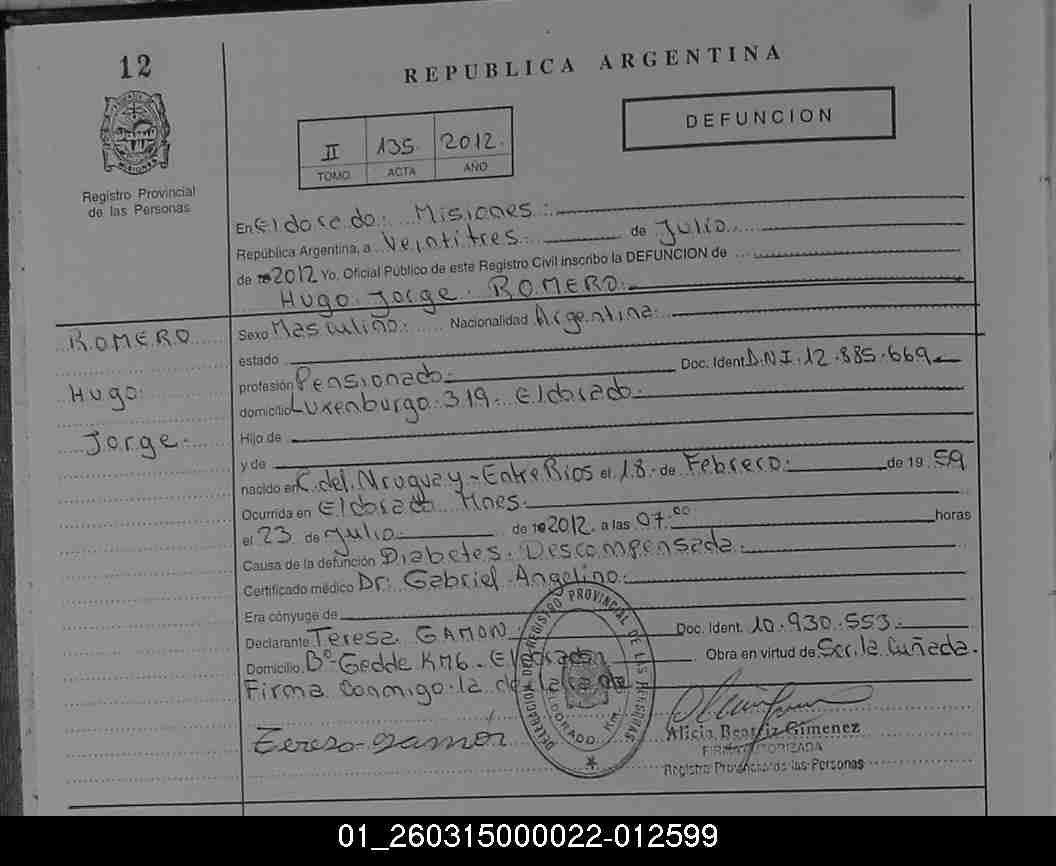 12
REPUBLICA ARGENTINA
DEFUNCION
II 135. 2012.
TOMO ACTA AÑO
MISIONES
Registro Provincial
de las Personas
En Eldorado. Misiones.
República Argentina, a Veintitres. de Julio.
de 2012 Yo. Oficial Público de este Registro Civil inscribo la DEFUNCION de
Hugo Jorge. ROMERO.
ROMERO
Hugo.
Jorge.
Sexo Masculino. Nacionalidad Argentina.
estado
profesión Pensionado. Doc. Ident. D.N.I. 12.885.669
domicilio Luxenburgo 319. Eldorado.
Hijo de
y de
nacido en C. del Uruguay - Entre Rios el 18. de Febrero. de 19 59
Ocurrida en Eldorado Mnes.
el 23 de Julio. de 2012. a las 07.00 horas
Causa de la defunción Diabetes. Descompensada.
Certificado médico Dr. Gabriel Angelino.
Era cónyuge de
Declarante Teresa GAMON Doc. Ident. 10.930.553.
Domicilio. Bº Gedde KM6 - Eldorado Obra en virtud de Ser. la Cuñada.
Firma conmigo la declarante
DELEGACION DEL REGISTRO PROVINCIAL DE LAS PERSONAS
ELDORADO, KM.
Tereso gamón
Alicia Beatriz Gimenez
FIRMA AUTORIZADA
Registro Provincial de las Personas
01_260315000022-012599